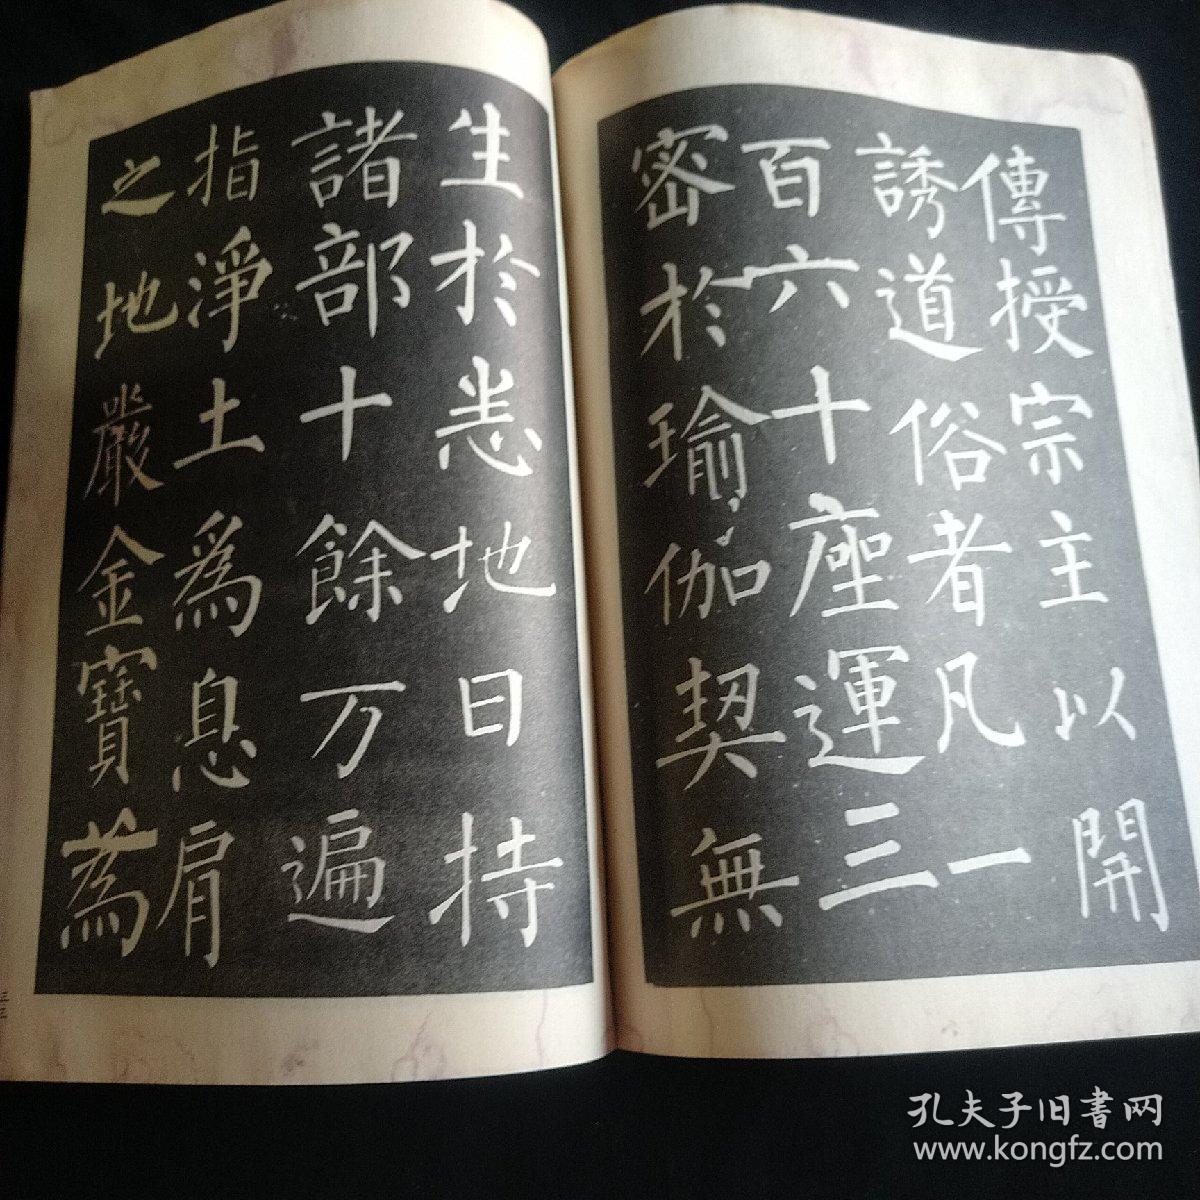 傳授宗主以開
誘道俗者凡一
百六十座運三
密於瑜伽契無
生於悉地日持
諸部十餘万遍
指淨土爲息肩
之地嚴金寶爲
孔夫子旧書网
www.kongfz.com